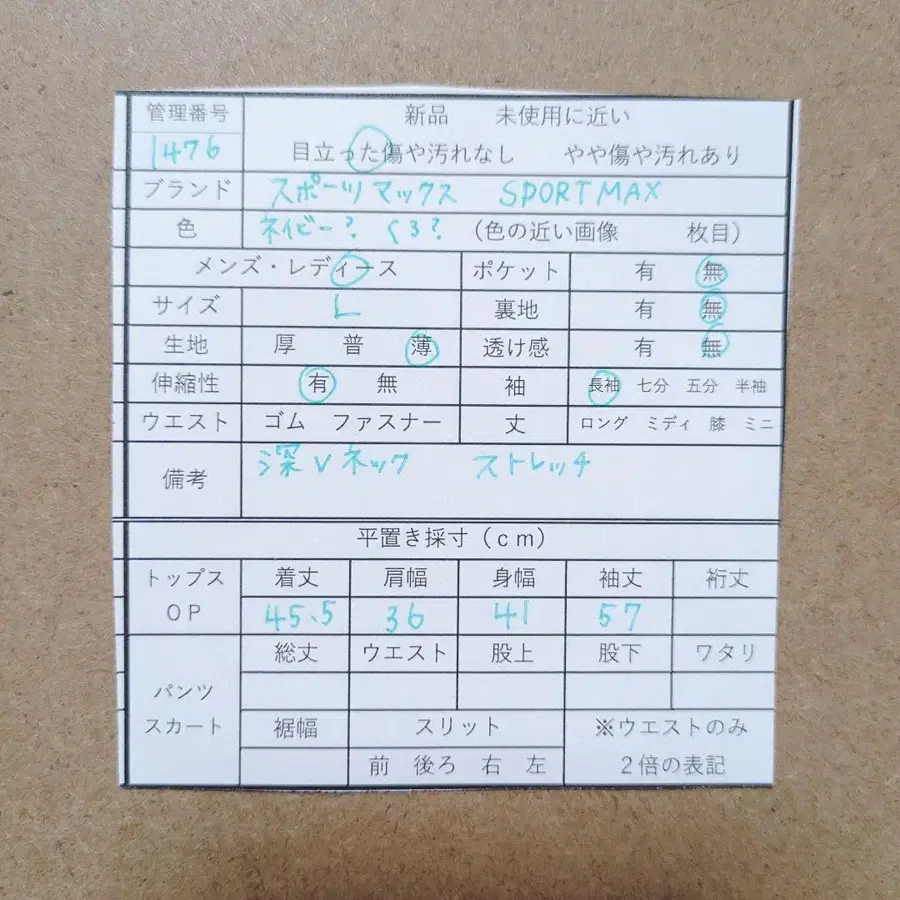 管理番号 新品 未使用に近い
1476 目立った傷や汚れなし やや傷や汚れあり
ブランド スポーツマックス SPORTMAX
色 ネイビー? くろ? (色の近い画像 枚目)
メンズ・レディース ポケット 有 無
サイズ L 裏地 有 無
生地 厚 普 薄 透け感 有 無
伸縮性 有 無 袖 長袖 七分 五分 半袖
ウエスト ゴム ファスナー 丈 ロング ミディ 膝 ミニ
備考 深Vネック ストレッチ
平置き採寸(cm)
トップス 着丈 肩幅 身幅 袖丈 裄丈
OP 45.5 36 41 57
総丈 ウエスト 股上 股下 ワタリ
パンツ
スカート 裾幅 スリット ※ウエストのみ
前 後ろ 右 左 2倍の表記